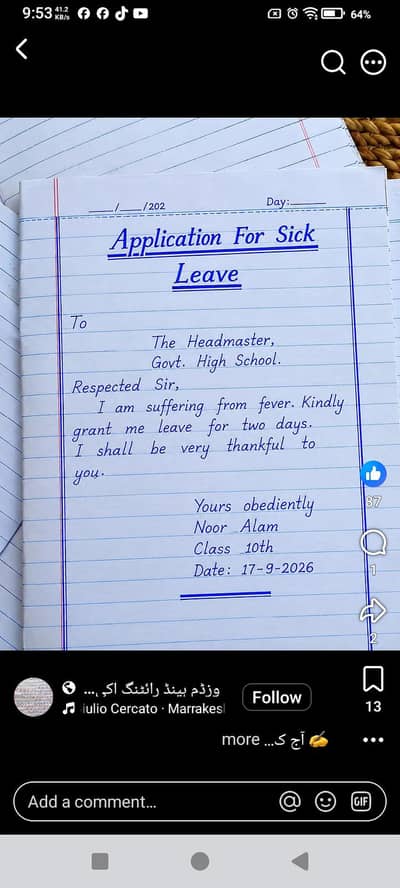 9:53 41.2 KB/s 64%
___/___/202 Day:______
Application For Sick
Leave
To
The Headmaster,
Govt. High School.
Respected Sir,
I am suffering from fever. Kindly
grant me leave for two days.
I shall be very thankful to
you.
Yours obediently
Noor Alam
Class 10th
Date: 17-9-2026
87
1
2
13
وزڈم ہینڈ رائٹنگ اکی...
Follow
iulio Cercato · Marrakes
آج ک... more
Add a comment...
GIF